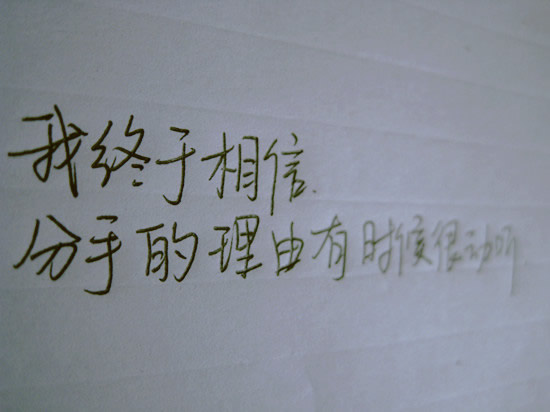 我终于相信
分手的理由有时候很动听